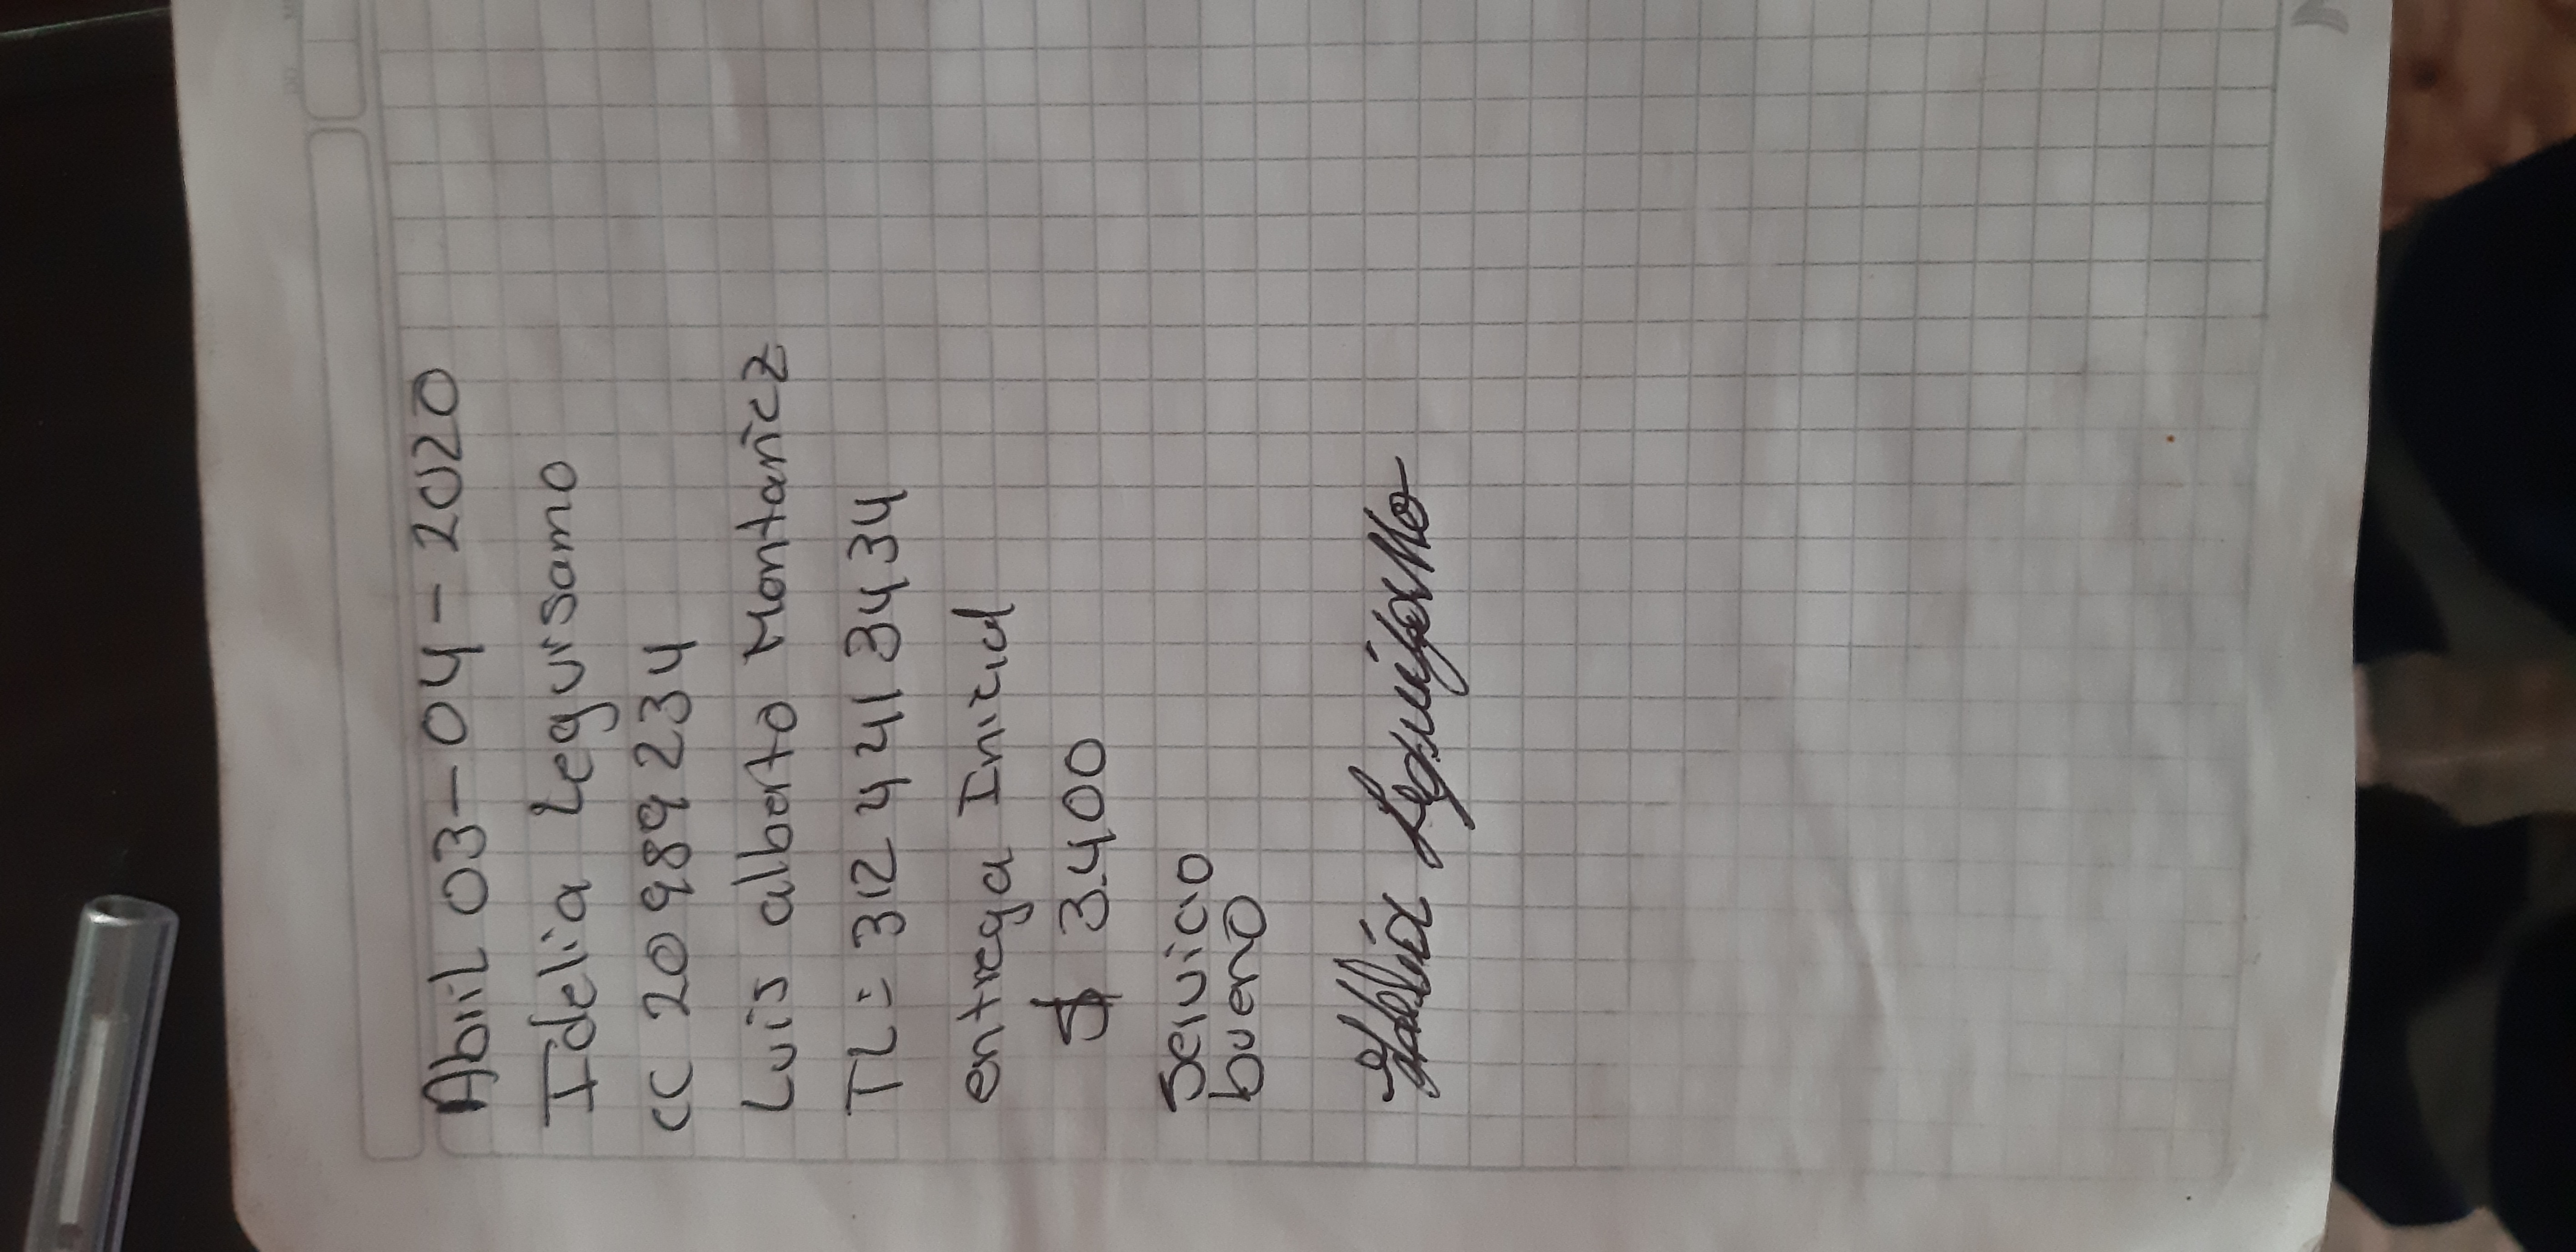 Abril 03-04-2020
Idelia Leguisamo
CC 20989234
Luis alberto Montañez
TL = 312 441 34 34
entrega Inicial
$ 3.400
Servicio
bueno
Idelia Leguisamo